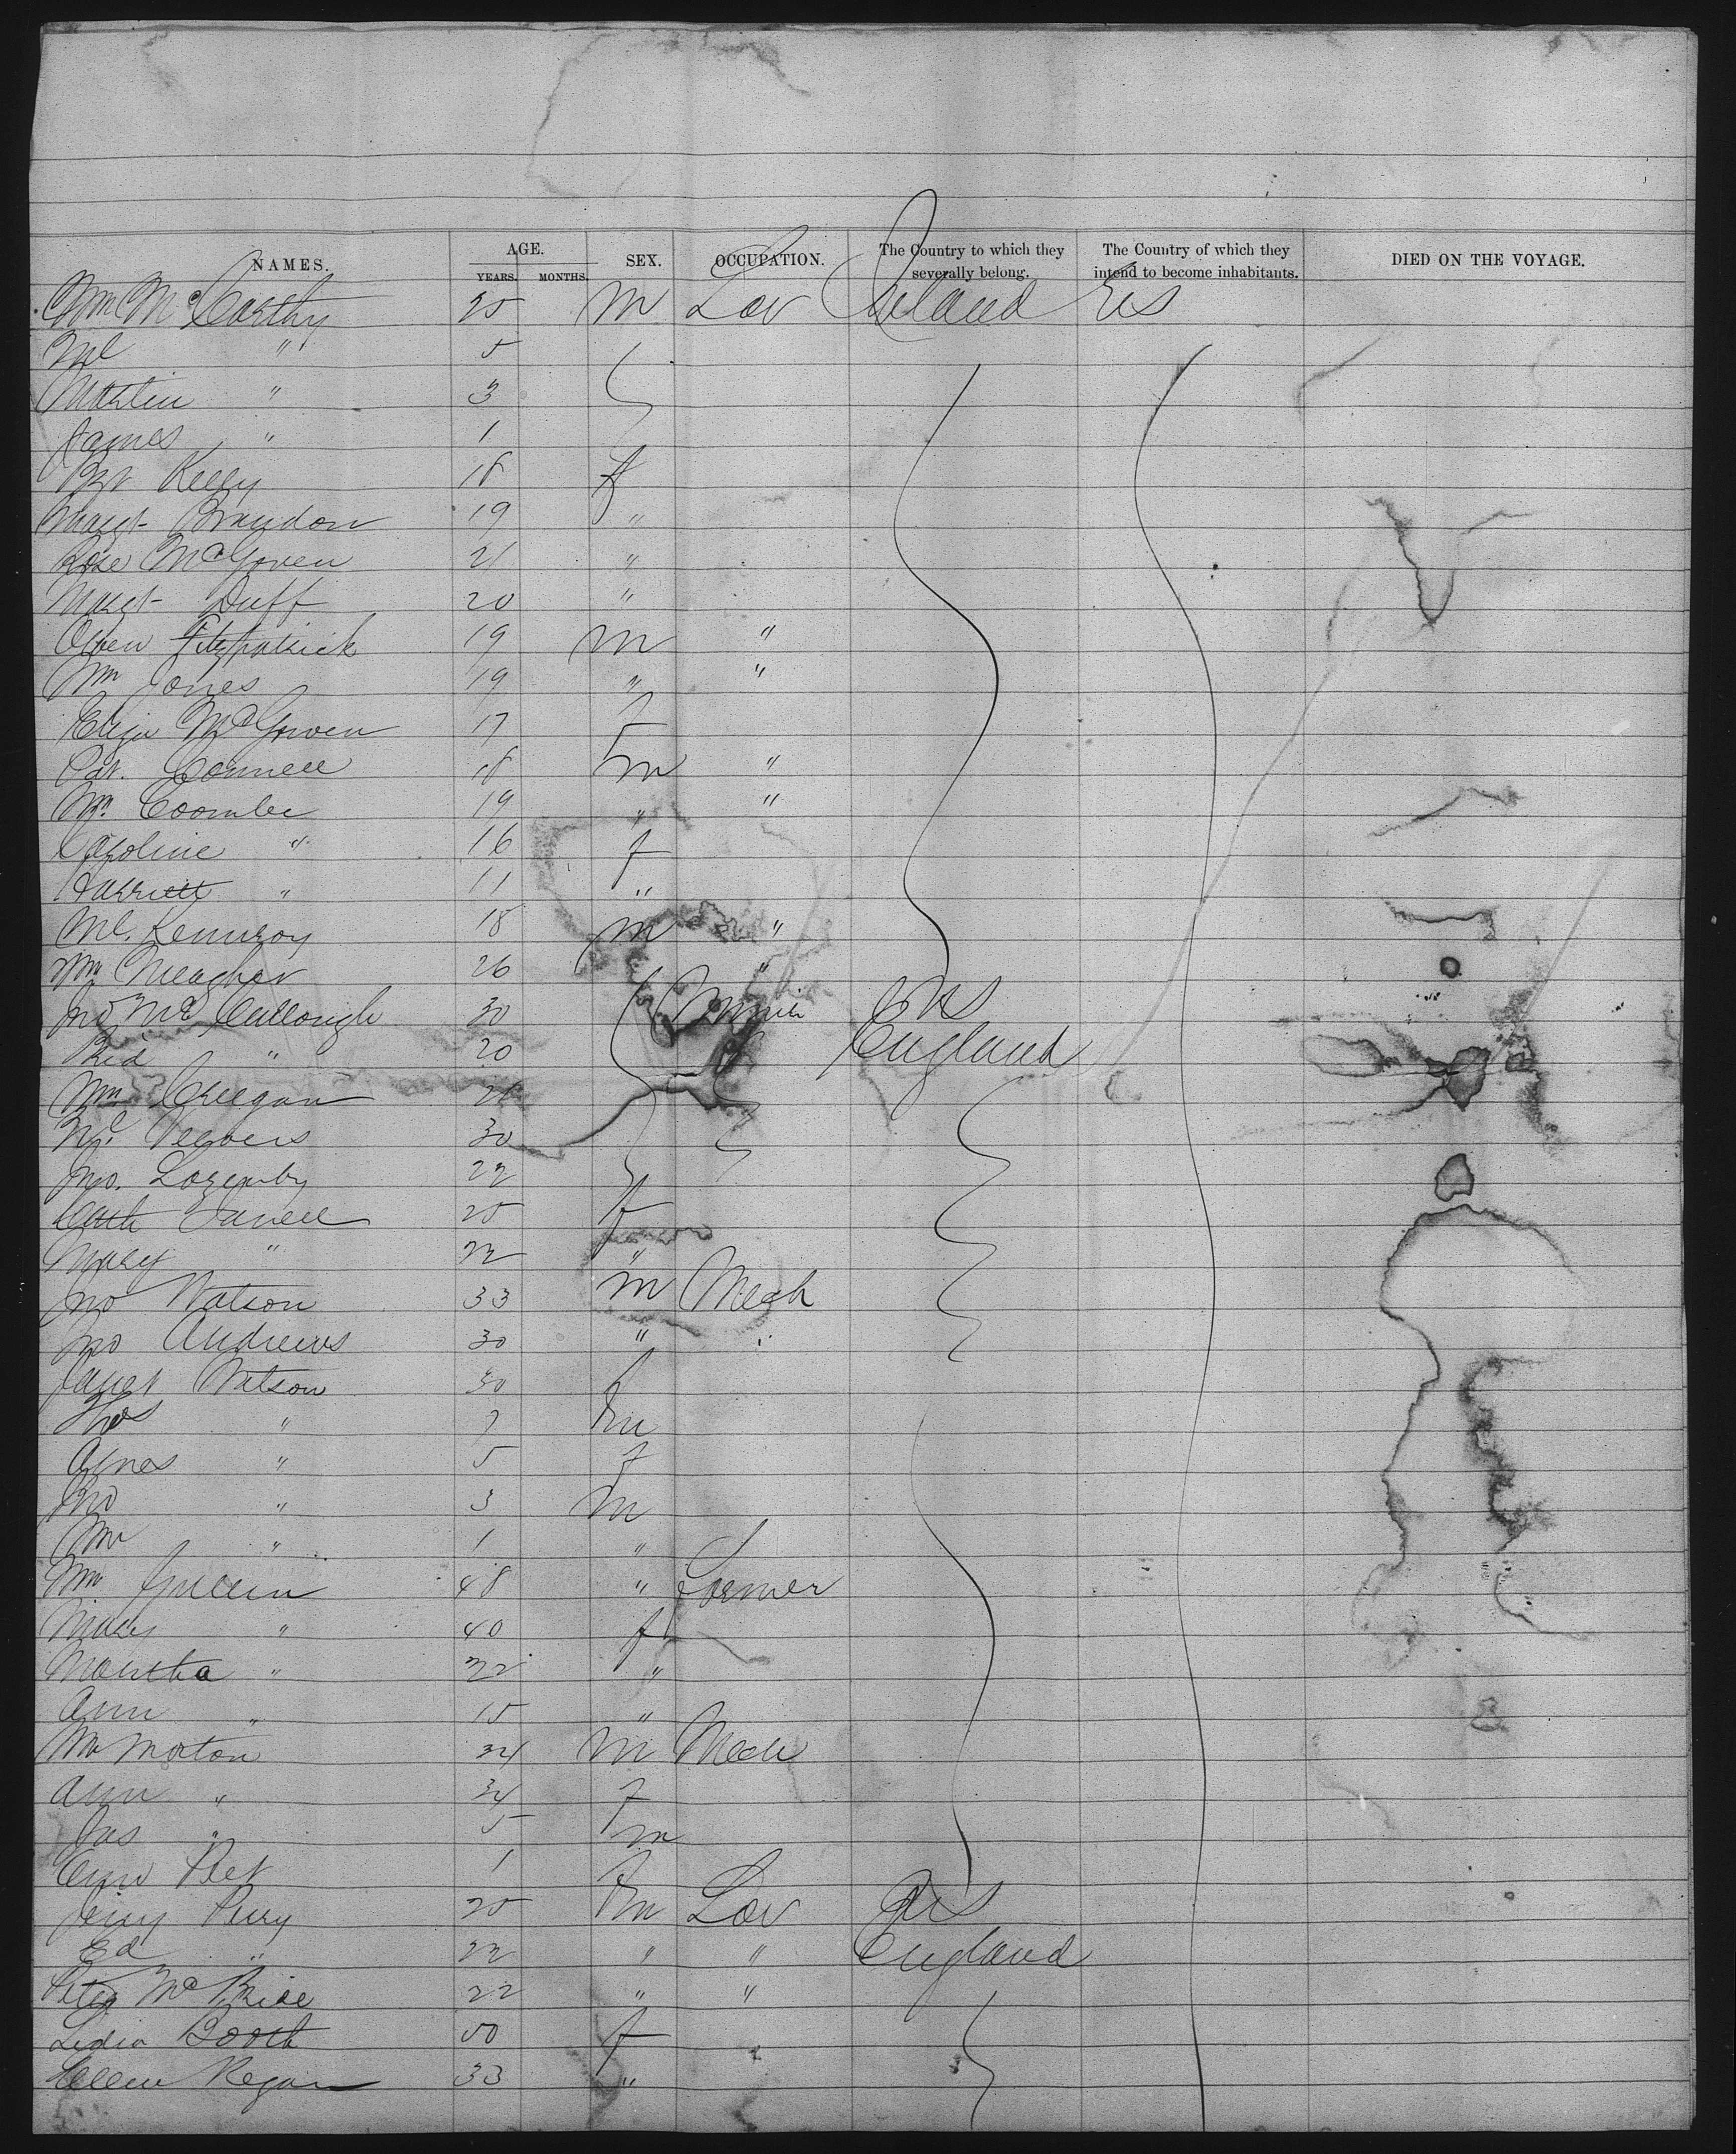 NAMES. AGE. SEX. OCCUPATION. The Country to which they severally belong. The Country of which they intend to become inhabitants. DIED ON THE VOYAGE.
YEARS. MONTHS.
Wm McCarthy 25 m Lav Ireland US
Ml " 5
Martin " 3
James " 1
Bt Kelly 18 f
Margt Brandon 19 "
Rose McGowen 21 "
Margt Duff 20 "
Owen Fitzpatrick 19 m "
Wm Jones 19 " "
Eliza McGowen 17 f
Pat. Connell 18 m "
Wm Coombe 19 " "
Caroline " 16 f
Harriett " 11 "
Ml. Kennroy 18 m "
Wm Meagher 26 "
Jno McCullough 30 US
Rid " 20 England
Wm Creegan 21
30
Jno. Lazenby 22
Cath 25 f
Mary " 22 "
Jno Watson 33 m Mech
Jno Andrews 30 " "
Janet Watson 30 f
Thos " 7 m
Agnes " 5 f
Jno " 3 m
Wm " 1 "
Wm 48 " Farmer
Mary " 40 f
Martha " 22 "
Ann " 15 "
Wm Morton 34 m Mech
Ann " 34 f
Jas " 5 m
1 f
Perry 25 m Lav US
Ed " 22 " " England
Peter McBride 22 " "
Lydia Booth 50 f
Ellen Regan 33 "